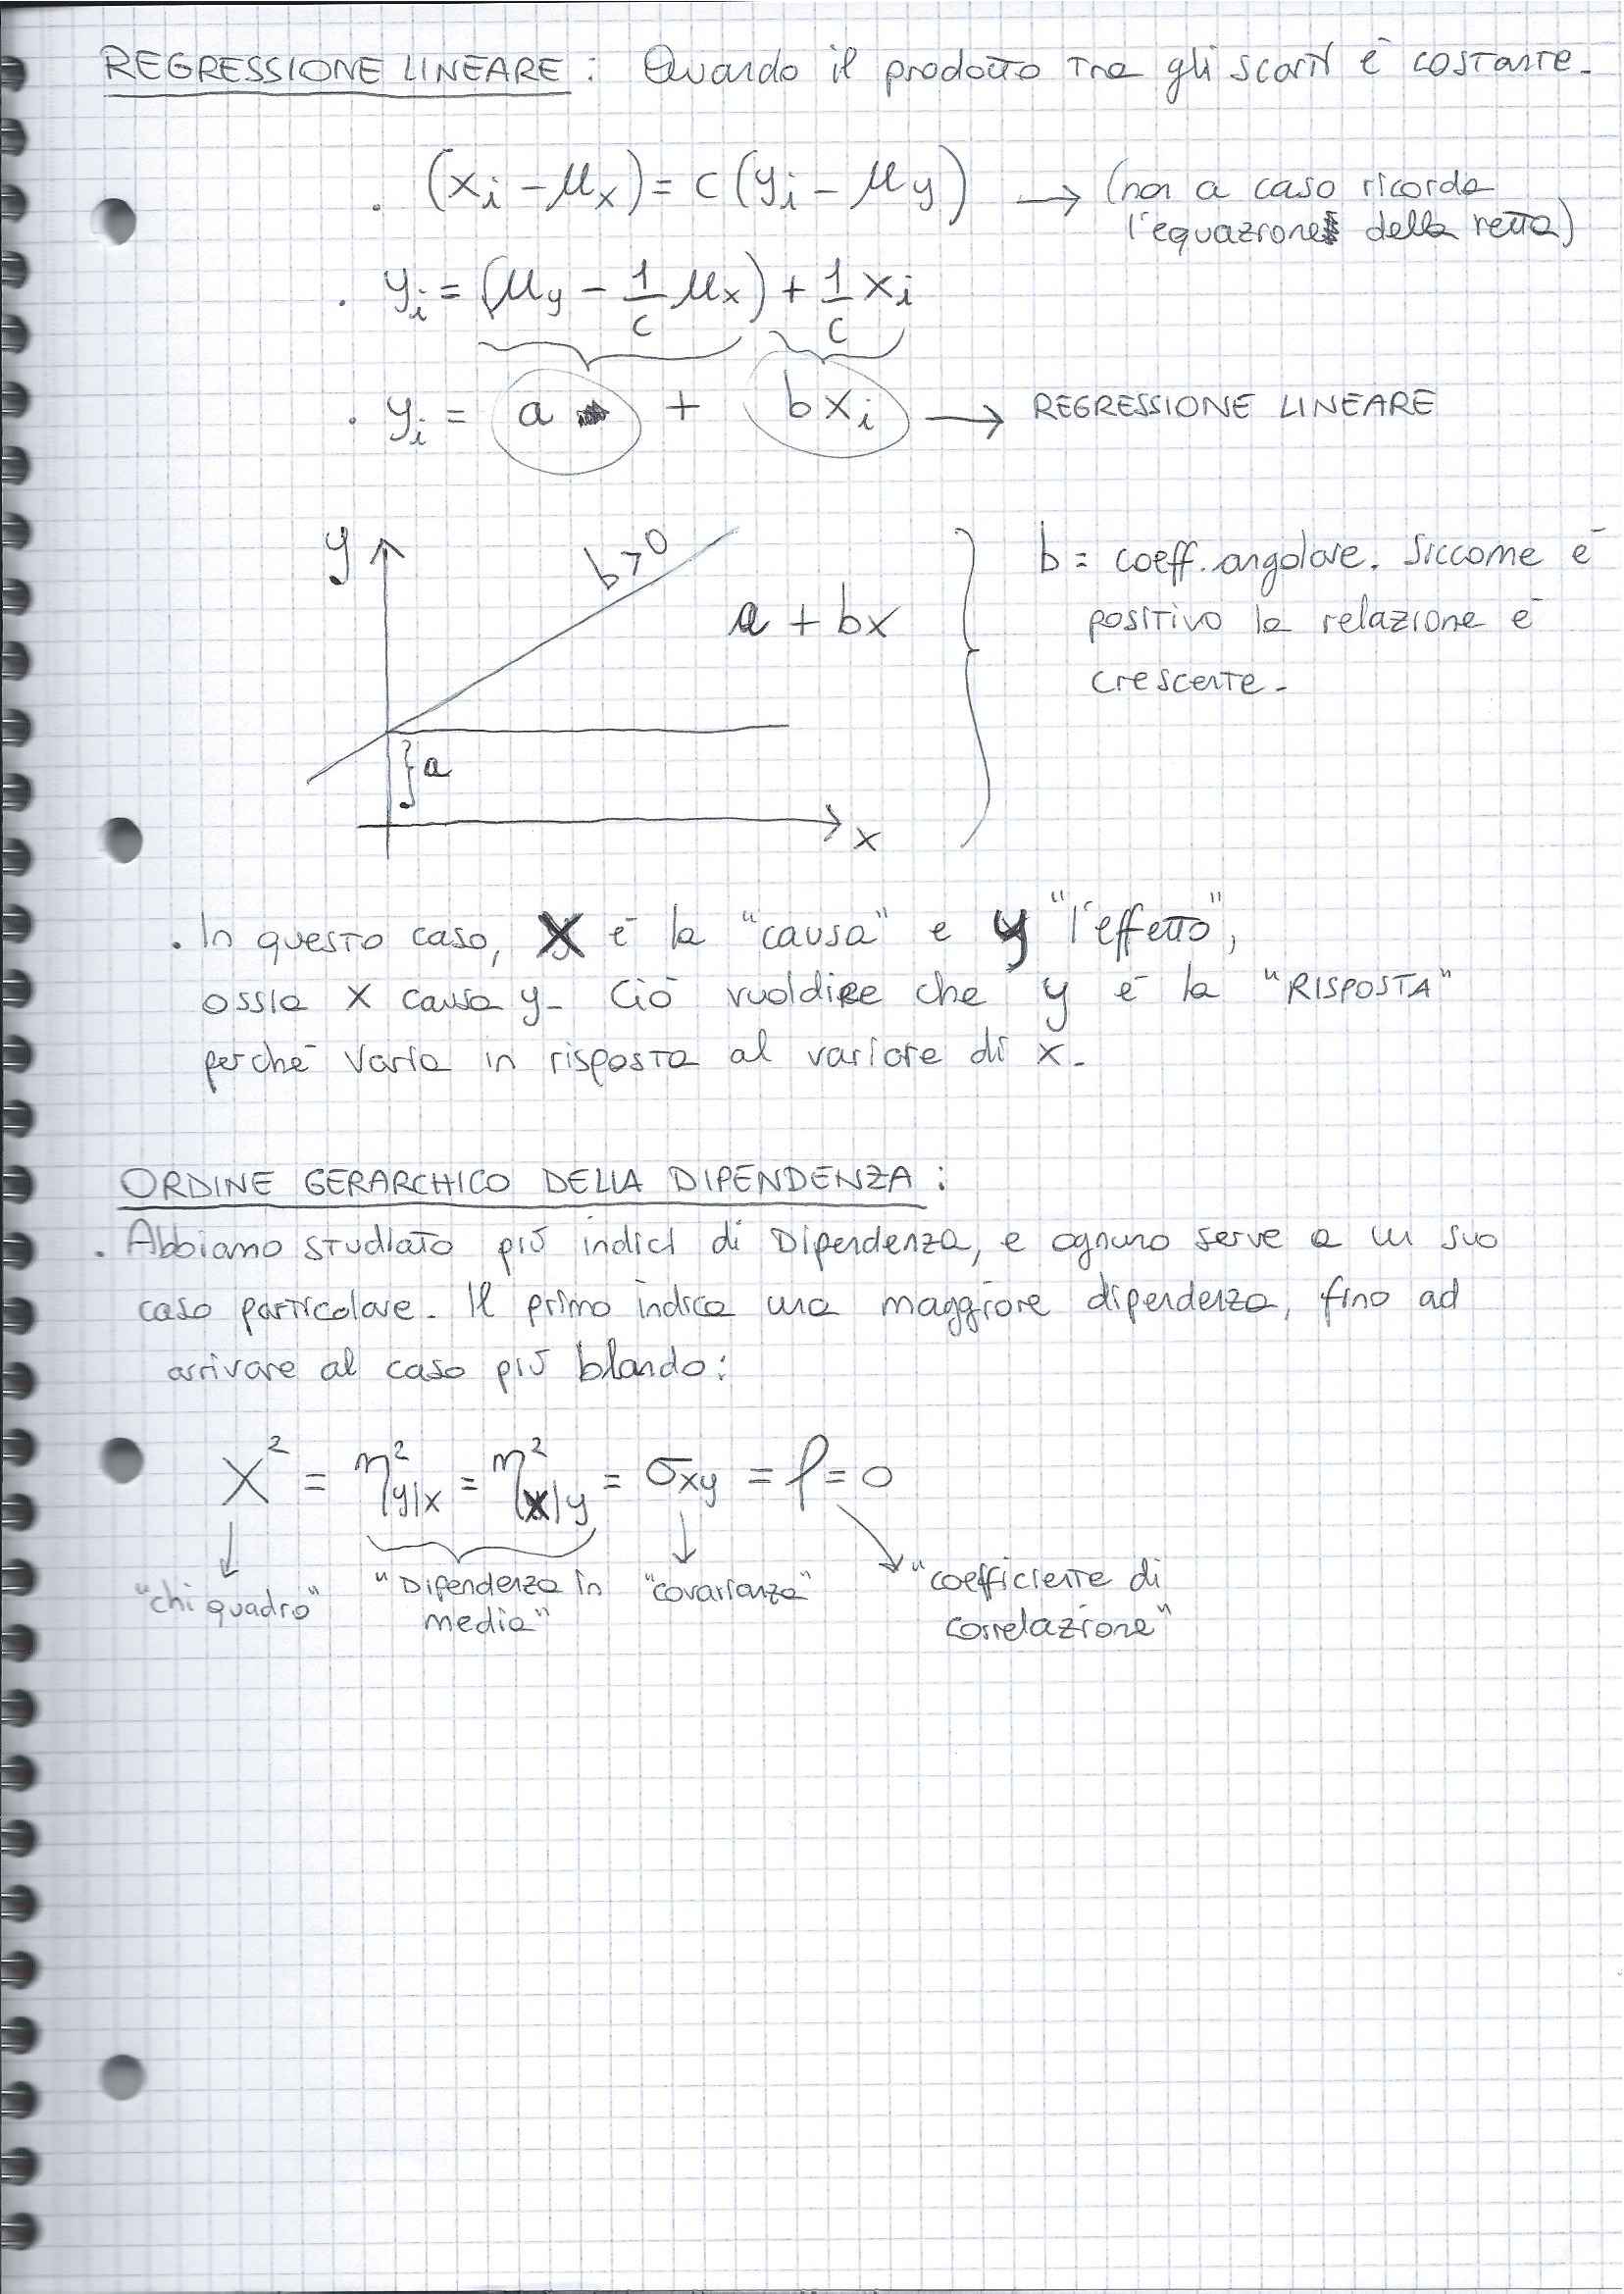 REGRESSIONE LINEARE : Quando il prodotto tra gli scarti è costante.
. (xi - μx) = c (yi - μy) → (non a caso ricorda
l'equazione della retta)
. yi = (μy - 1/c μx) + 1/c xi
. yi = a + bxi → REGRESSIONE LINEARE
y
b>0
a + bx
a
x
b = coeff. angolare. Siccome è
positivo la relazione è
crescente.
. In questo caso, X è la "causa" e y "l'effetto",
ossia x causa y. Ciò vuoldire che y è la "RISPOSTA"
perché varia in risposta al variare di x.
ORDINE GERARCHICO DELLA DIPENDENZA :
. Abbiamo studiato più indici di Dipendenza, e ognuno serve a un suo
caso particolare. Il primo indica una maggiore dipendenza, fino ad
arrivare al caso più blando:
X² = η²y|x = η²x|y = σxy = ρ = 0
"chi quadro" "Dipendenza in media" "covarianza" "coefficiente di
correlazione"